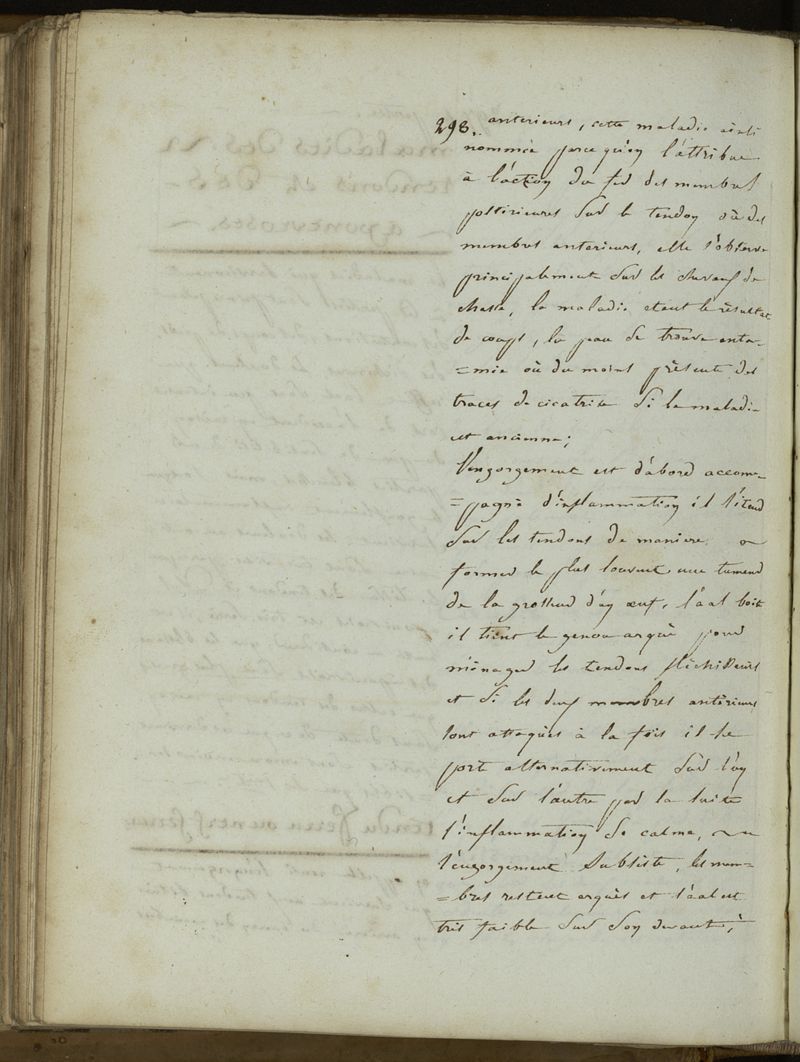 298. anterieurs, cette maladie ainsi
nommée parce qu'on l'attribue
à l'action du fer des membres
postérieures sur le tendon où des
membres anterieurs, elle s'observe
principalement sur les chevaux de
chasse, la maladie etant le résultat
de coups, la peau se trouve enta-
=mée où du moins présente des
traces de cicatrice si la maladie
est ancienne;
l'engorgement est d'abord accom-
=pagné d'inflammation il s'étend
sur les tendons de maniere a
former le plus souvent une tumeur
de la grosseur d'un œuf, l'aal boite
il tient le genou arqué pour
ménager les tendons fléchisseurs
et si les deux membres antérieurs
sont attaqués à la fois il se
porte alternativement sur l'un
et sur l'autre par la suite
l'inflammation se calme,
l'engorgement subsiste, les mem-
=bres restent arqués et l'aal est
très faible sur son devant;